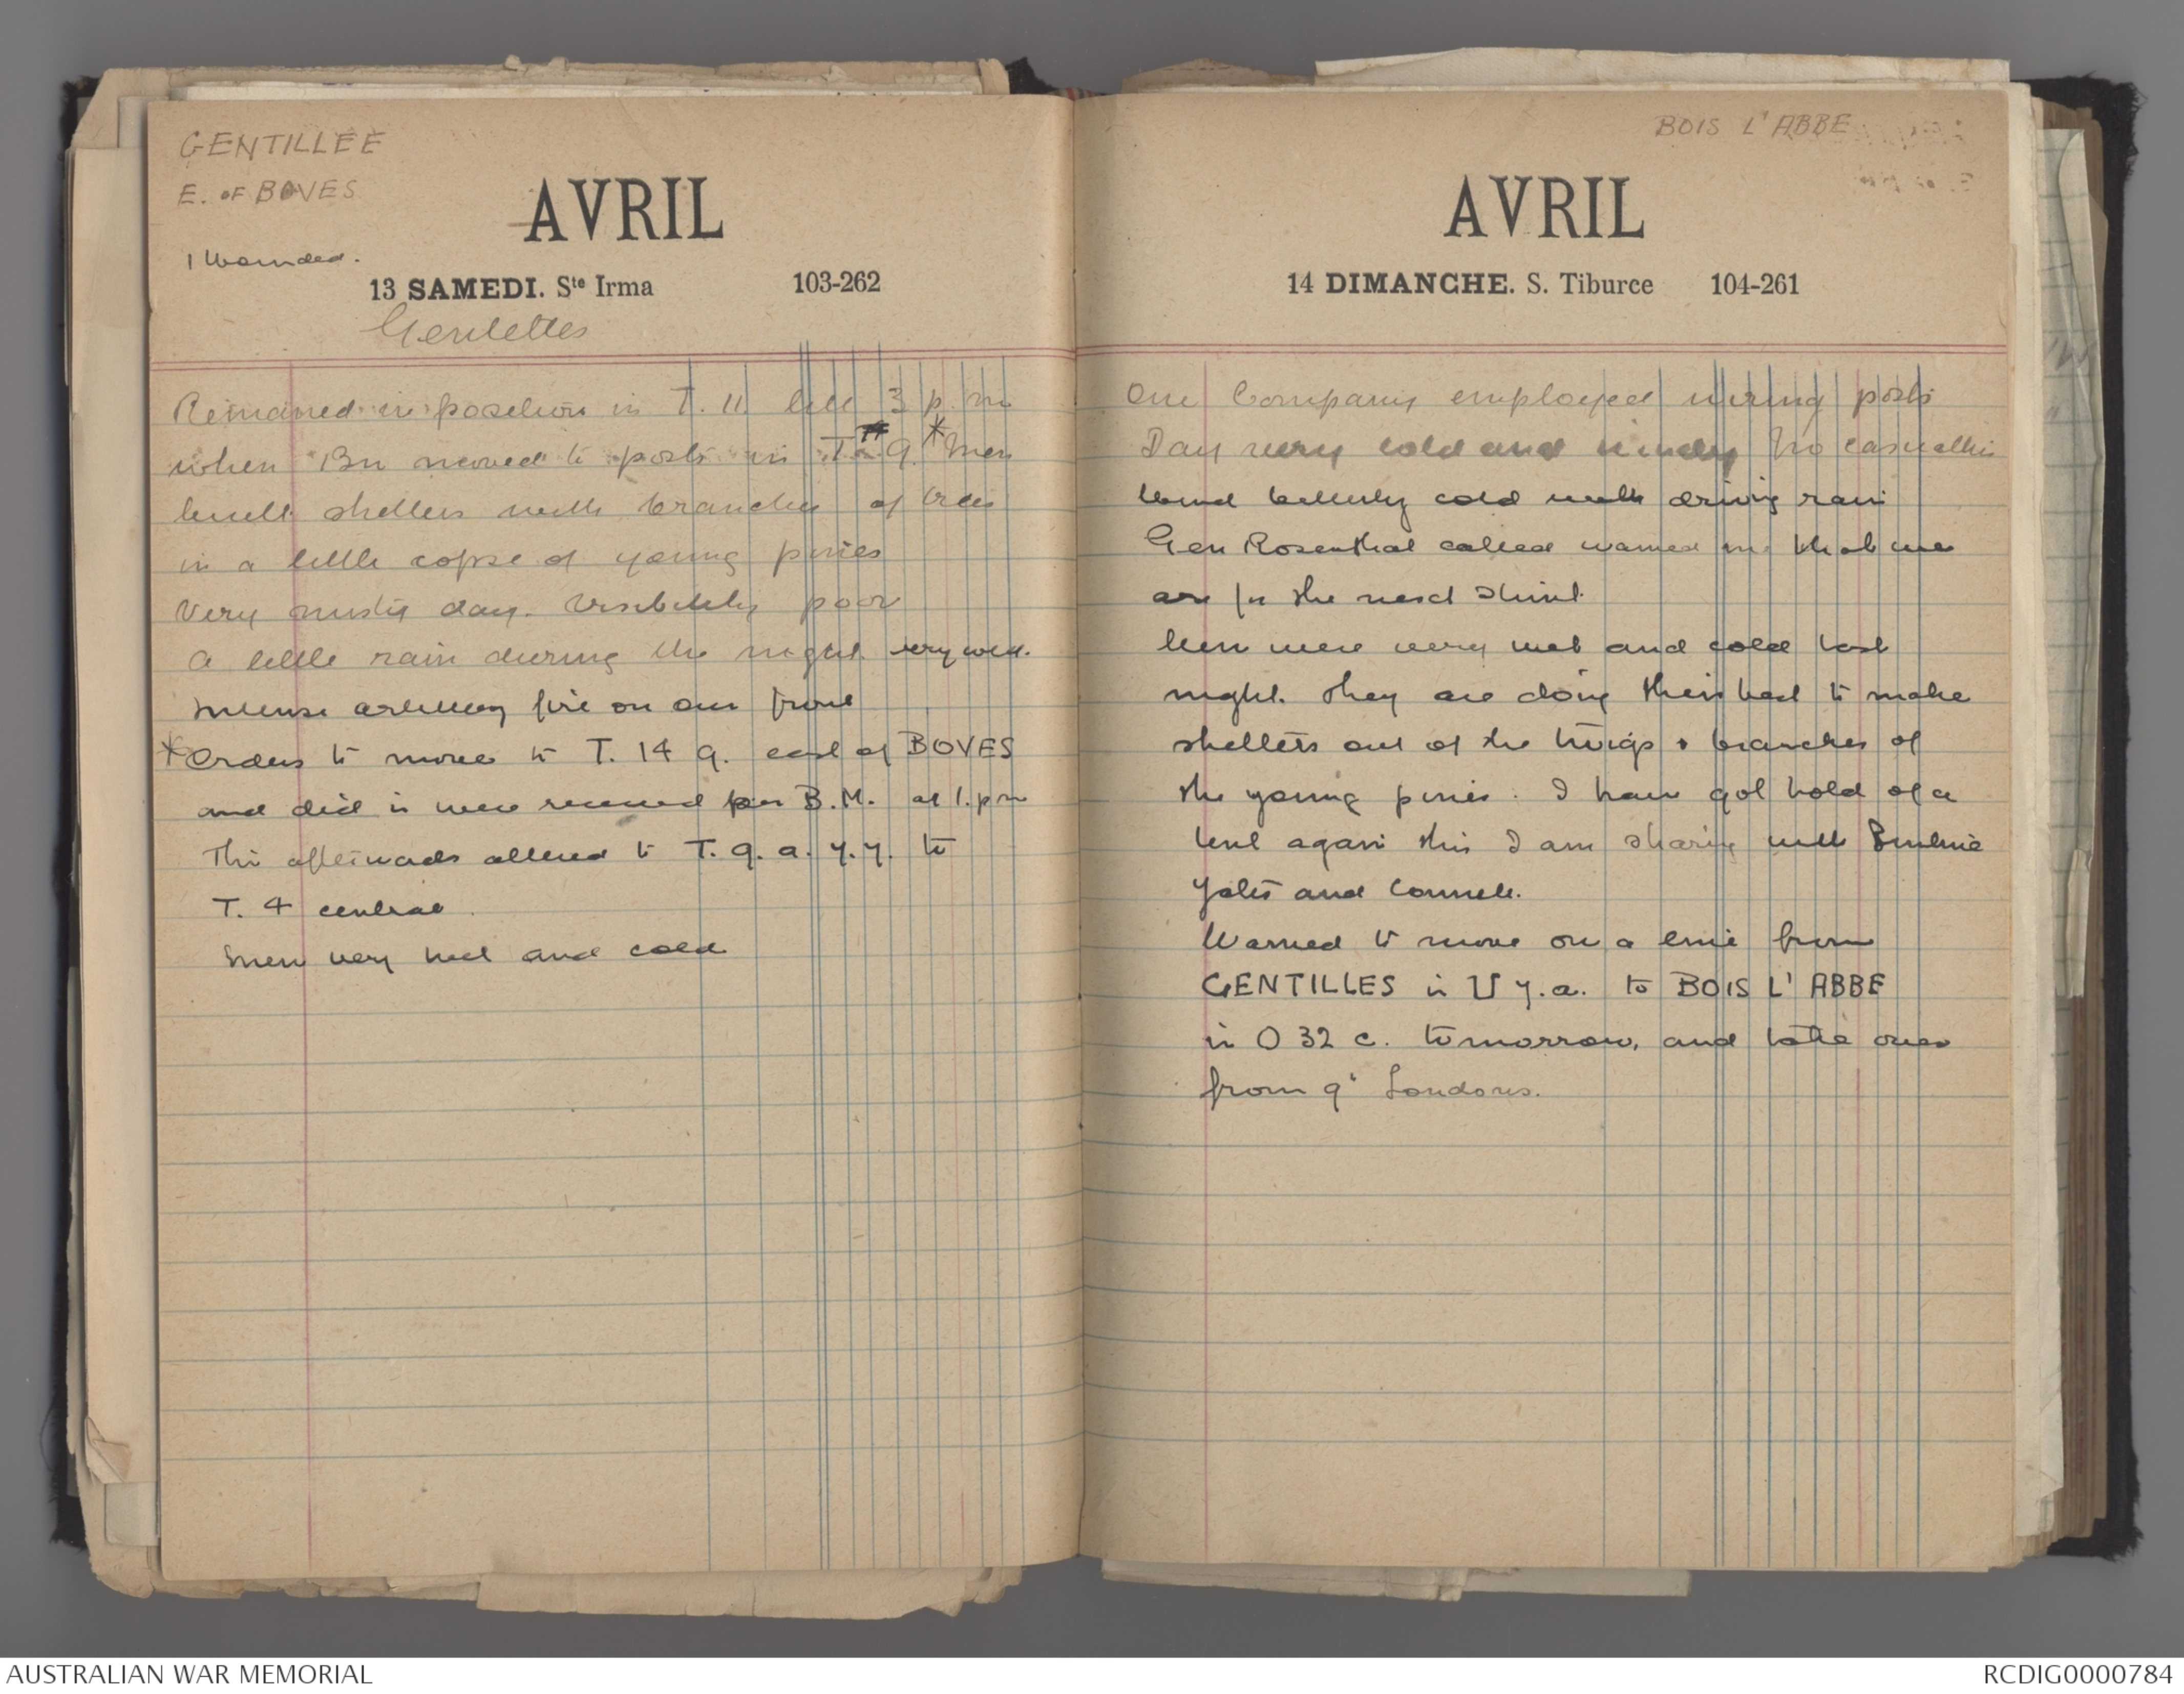 GENTILLEE
E. OF BOVES
AVRIL
1 Wounded.
13 SAMEDI. Ste Irma 103-262
Gentelles
Remained in position in T. 11 till 3 p. m
when Bn moved to posts in T. 9. * Men
built shelters with branches of trees
in a little copse of young pines
Very misty day. Visibility poor
A little rain during the night very cold.
Intense artillery fire on our front
* Orders to move to T. 14 9. east of BOVES
and did in were received per B.M. at 1. pm
This afterwards altered to T. 9. a. 7.7. to
T. 4 central.
Men very wet and cold
BOIS L'ABBE
AVRIL
14 DIMANCHE. S. Tiburce 104-261
One Company employed wiring posts
Day very cold and windy No casualties
Wind bitterly cold with driving rain
Gen Rosenthal called warned me that we
are for the next stunt.
Men were very wet and cold last
night. They are doing their best to make
shelters out of the twigs & branches of
the young pines. I have got hold of a
tent again this I am sharing with
Yates and Connell.
Warned to move on a line from
GENTILLES in U 7.a. to BOIS L'ABBE
in O 32 c. tomorrow, and take over
from 9' Londons.
AUSTRALIAN WAR MEMORIAL
RCDIG0000784